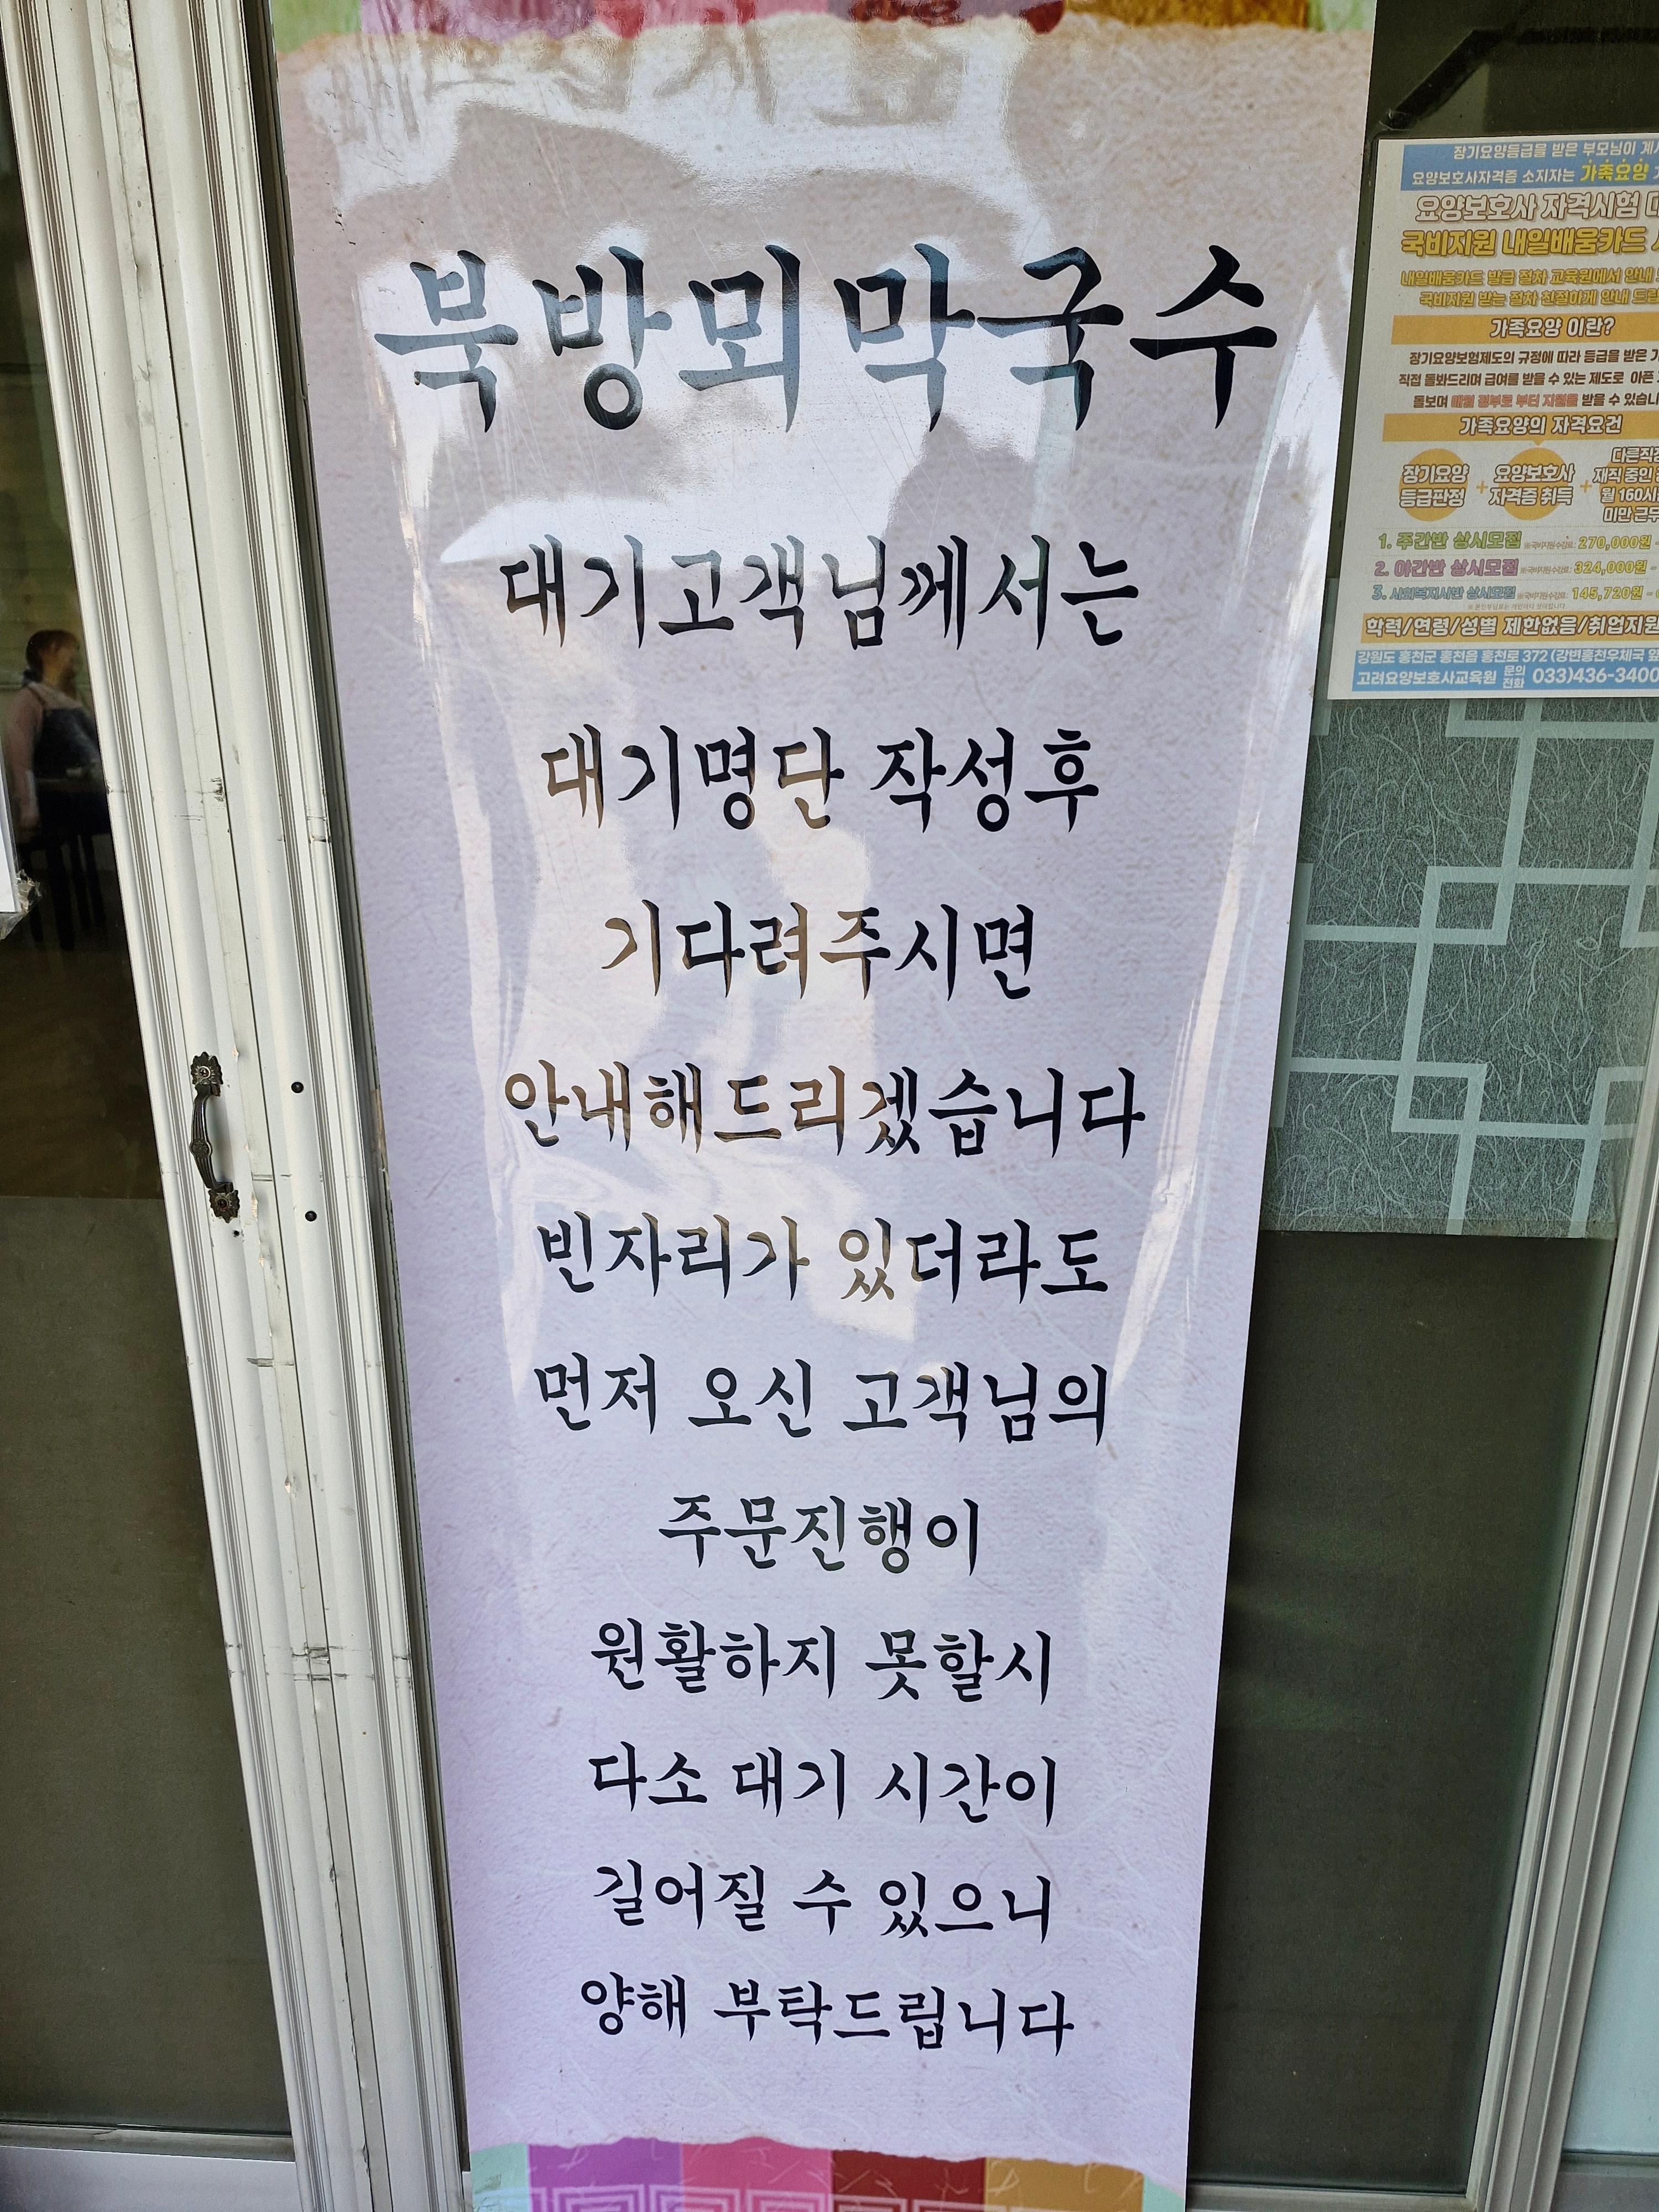 북방뫼막국수
대기고객님께서는
대기명단 작성후
기다려주시면
안내해드리겠습니다
빈자리가 있더라도
먼저 오신 고객님의
주문진행이
원활하지 못할시
다소 대기 시간이
길어질 수 있으니
양해 부탁드립니다
장기요양등급을 받은 부모님이
요양보호사자격증 소지자는 가족요양
요양보호사 자격시험
국비지원 내일배움카드
내일배움카드 발급 절차 교육원에서 안내
국비지원 받는 절차 친절하게 안내
가족요양 이란?
장기요양보험제도의 규정에 따라 등급을 받은
직접 돌봐드리며 급여를 받을 수 있는 제도로 아픈
돌보며 매월 정부로 부터 지원을 받을 수 있습니
가족요양의 자격요건
장기요양
등급판정
+
요양보호사
자격증 취득
+
다른직장
재직 중인
월 160시
미만 근무
1. 주간반 상시모집 270,000원
2. 야간반 상시모집 324,000원
3. 사회복지사반 상시모집 145,720원
학력/연령/성별 제한없음/취업지원
강원도 홍천군 홍천읍 홍천로 372 (강변홍천우체국 옆
고려요양보호사교육원 문의전화 033)436-3400